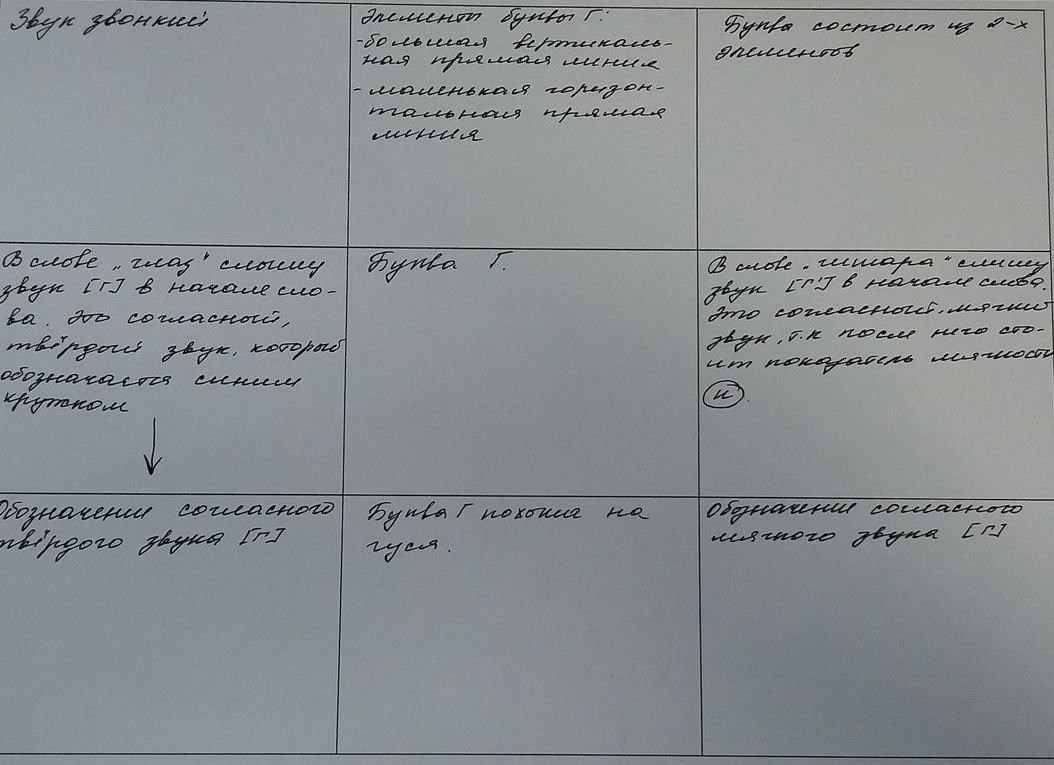 Звук звонкий
Элементы буквы Г:
-большая вертикаль-
ная прямая линия
- маленькая горизон-
тальная прямая
линия
Буква состоит из 2-х
элементов
В слове „глаз“ слышу
звук [Г] в начале сло-
ва. Это согласный,
твёрдый звук, который
обозначается синим
кружком
Буква Г.
В слове „гитара“ слышу
звук [Г'] в начале слова.
Это согласный, мягкий
звук, т.к после него сто-
ит показатель мягкости
и.
Обозначение согласного
твёрдого звука [Г]
Буква Г похожа на
гуся.
Обозначение согласного
мягкого звука [Г]